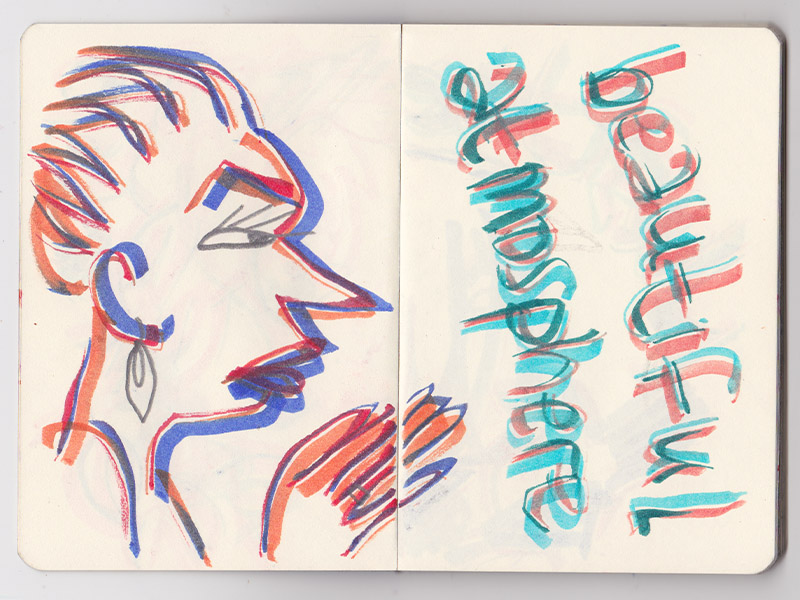 beautiful
atmosphere